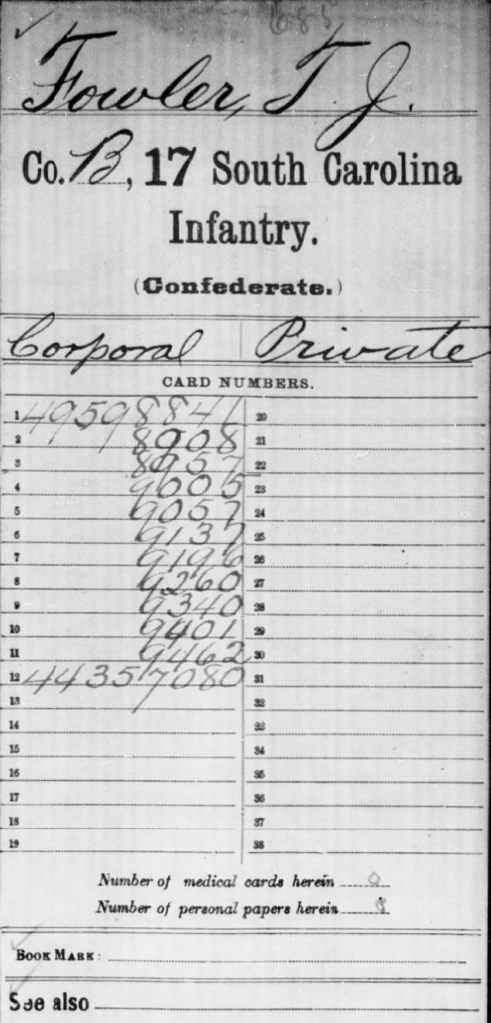 685
Fowler, T. J.
Co. B, 17 South Carolina
Infantry.
(Confederate.)
Corporal Private
CARD NUMBERS.
1 49598841 20
2 8908 21
3 8957 22
4 9005 23
5 9057 24
6 9137 25
7 9196 26
8 9260 27
9 9340 28
10 9401 29
11 9462 30
12 44357080 31
13 32
14 33
15 34
16 35
17 36
18 37
19 38
Number of medical cards herein 0
Number of personal papers herein 8
BOOK MARK:
See also